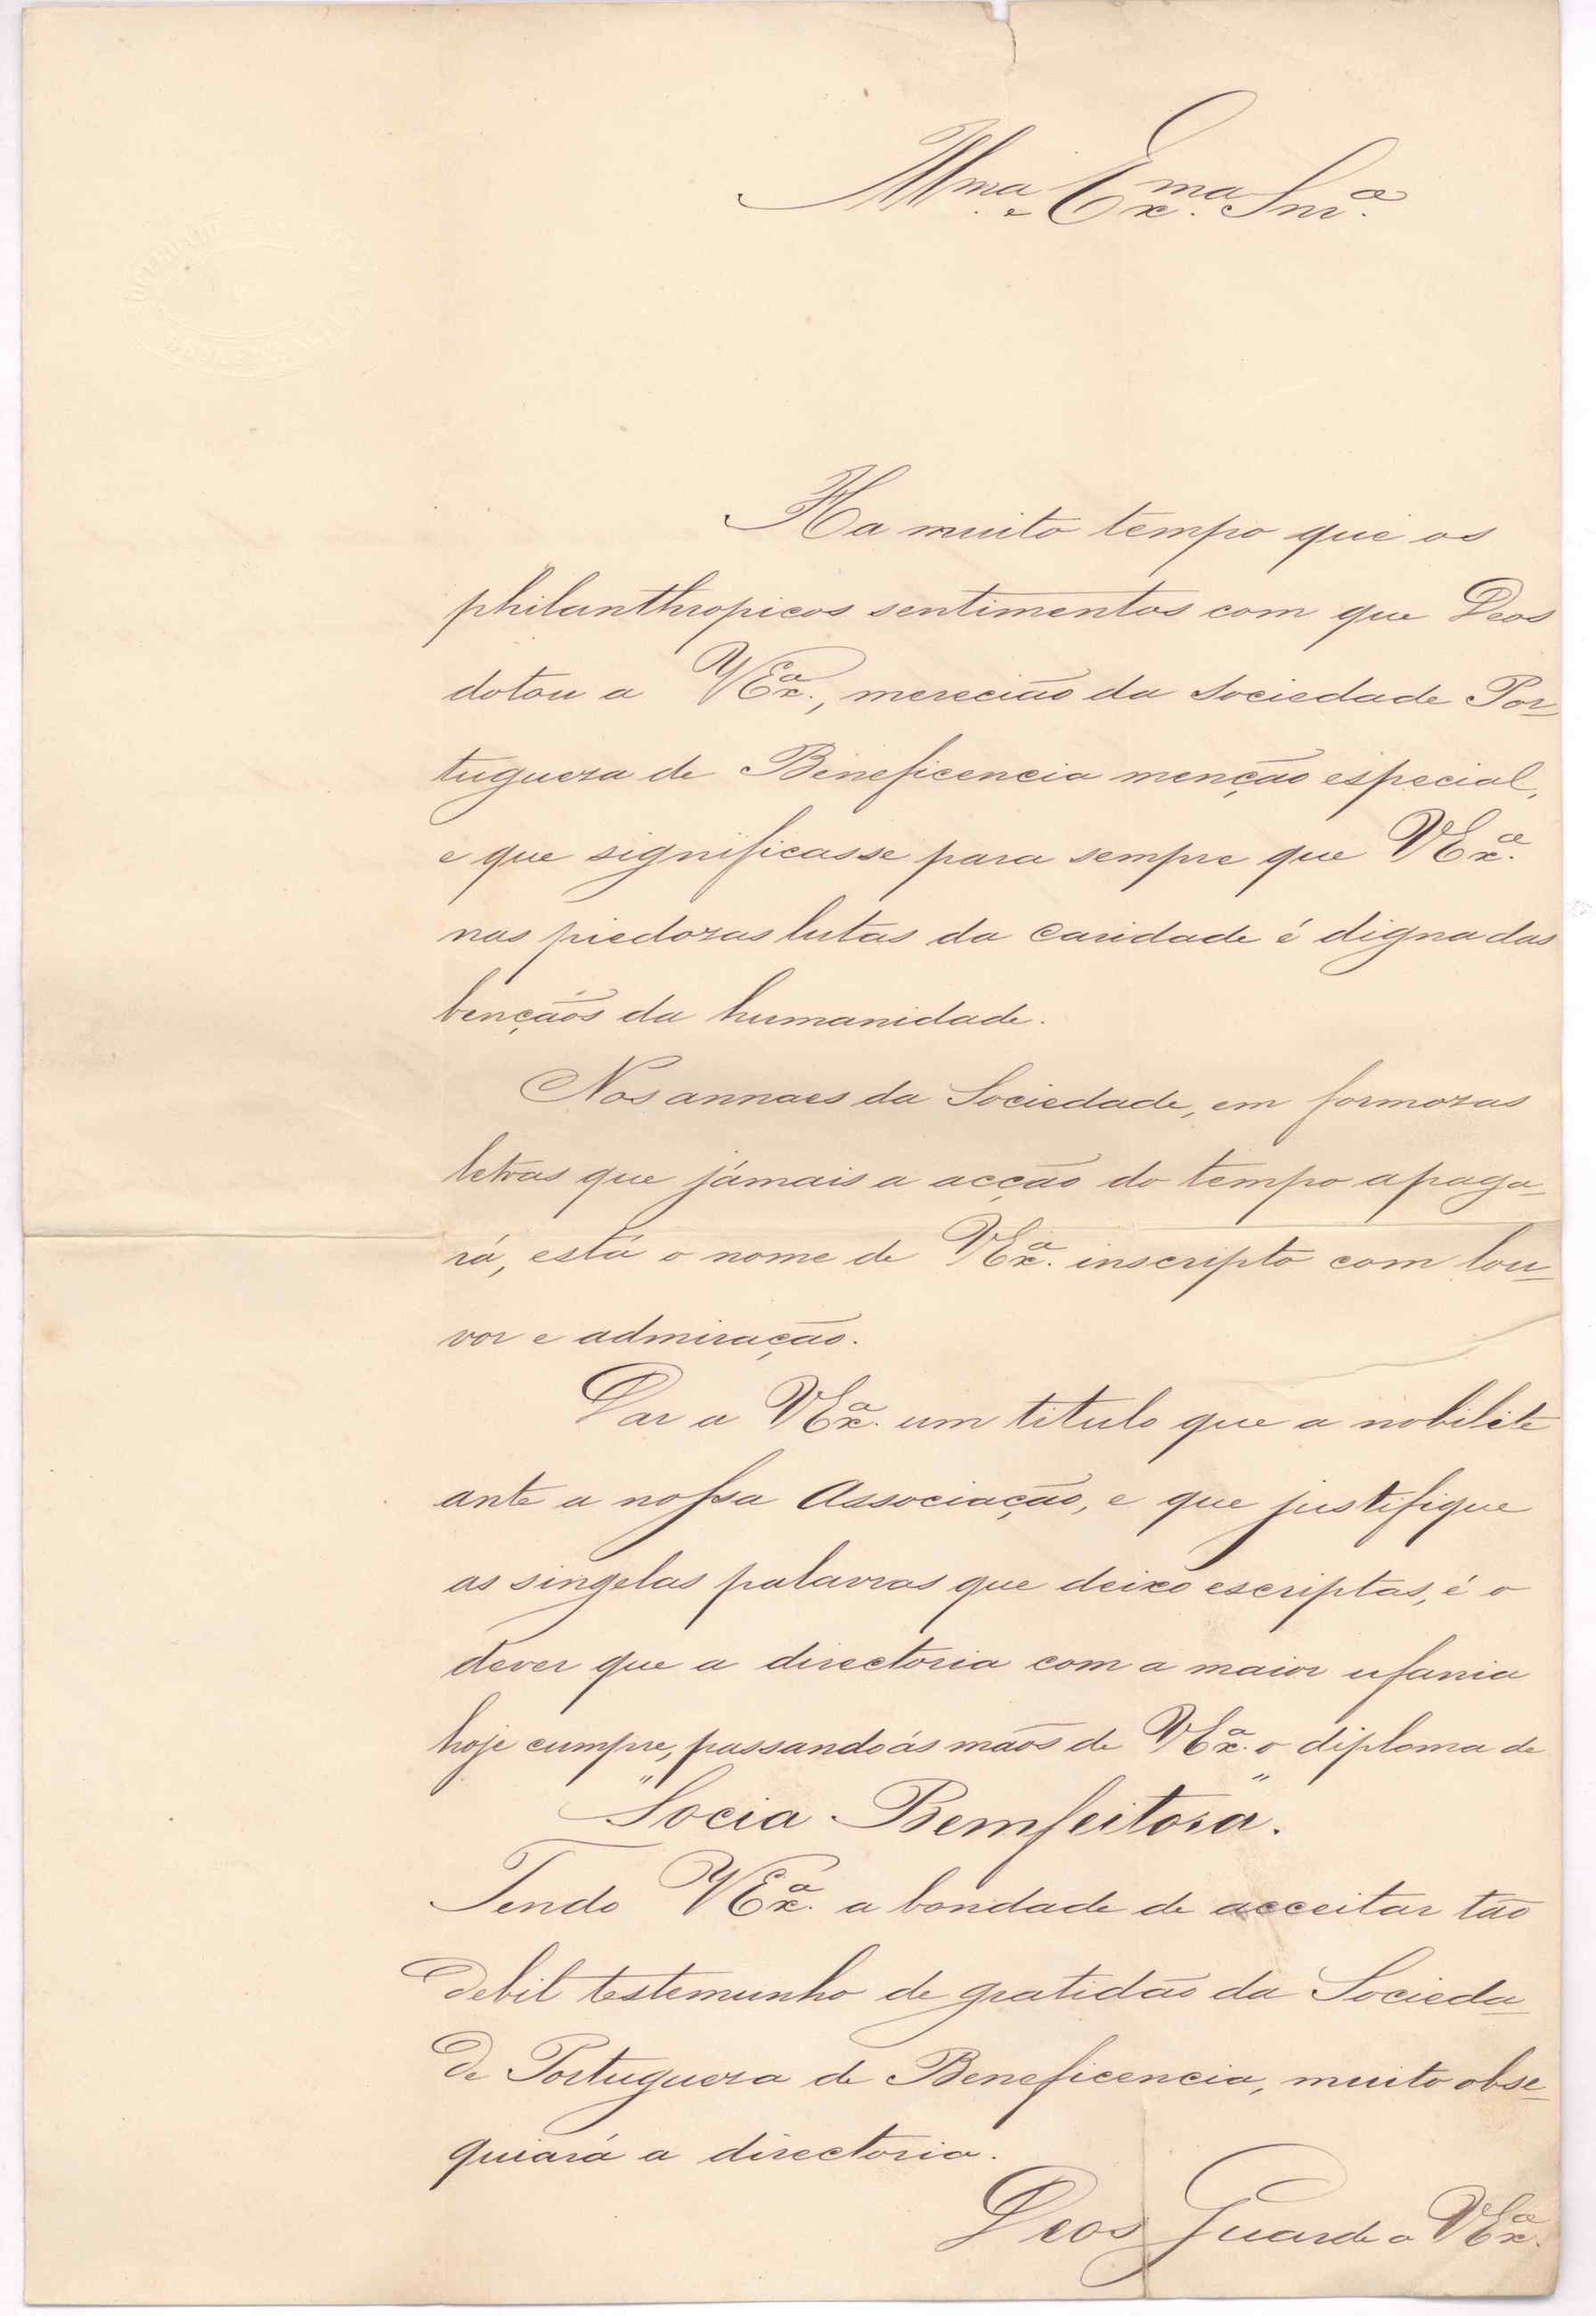 Illma e Exma. Snra.
Ha muito tempo que os
philanthropicos sentimentos com que Deos
dotou a VExa., merecião da Sociedade Por-
tugueza de Beneficencia menção especial,
e que significasse para sempre que VExa.
nas piedozas lutas da Caridade é digna das
bençãos da humanidade.
Nos annaes da Sociedade, em formozas
letras que jámais a acção do tempo apaga-
rá, está o nome de VExa. inscripto com lou-
vor e admiração.
Dar a VExa. um titulo que a nobilite
ante a nossa Associação, e que justifique
as singelas palavras que deixo escriptas, é o
dever que a directoria com a maior ufania
hoje cumpre, passando ás mãos de VExa. o diploma de
"Socia Bemfeitora".
Tendo VExa. a bondade de acceitar tão
debil testemunho de gratidão da Socieda-
de Portugueza de Beneficencia, muito obse-
quiará a directoria.
Deos Guarde a VExa.